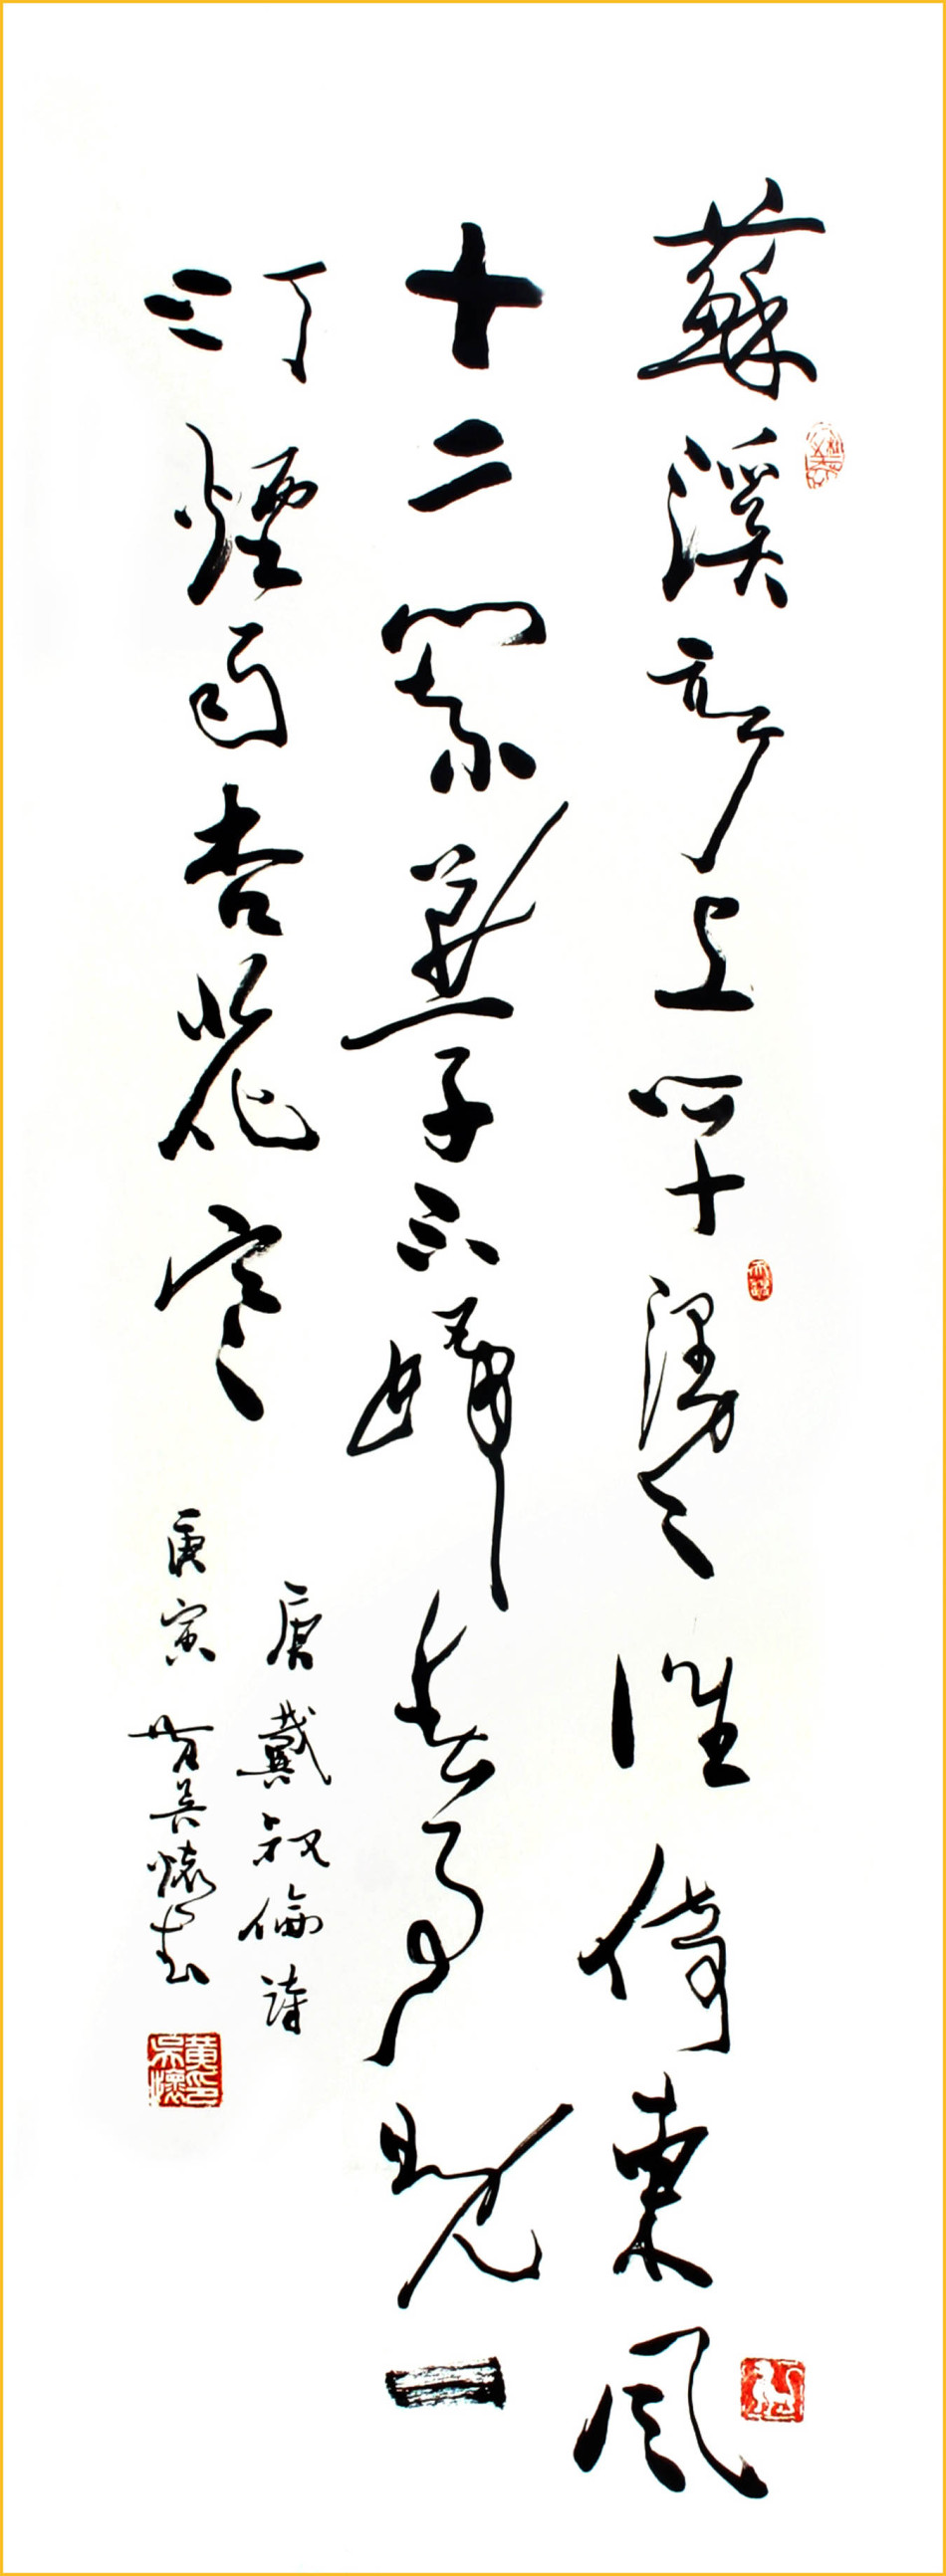 蘇溪亭上草漫々誰倚東風
十二闌燕子不歸春事晚一
汀煙雨杏花寒
唐戴叔倫詩
庚寅黃吳懷書
黃吳懷印